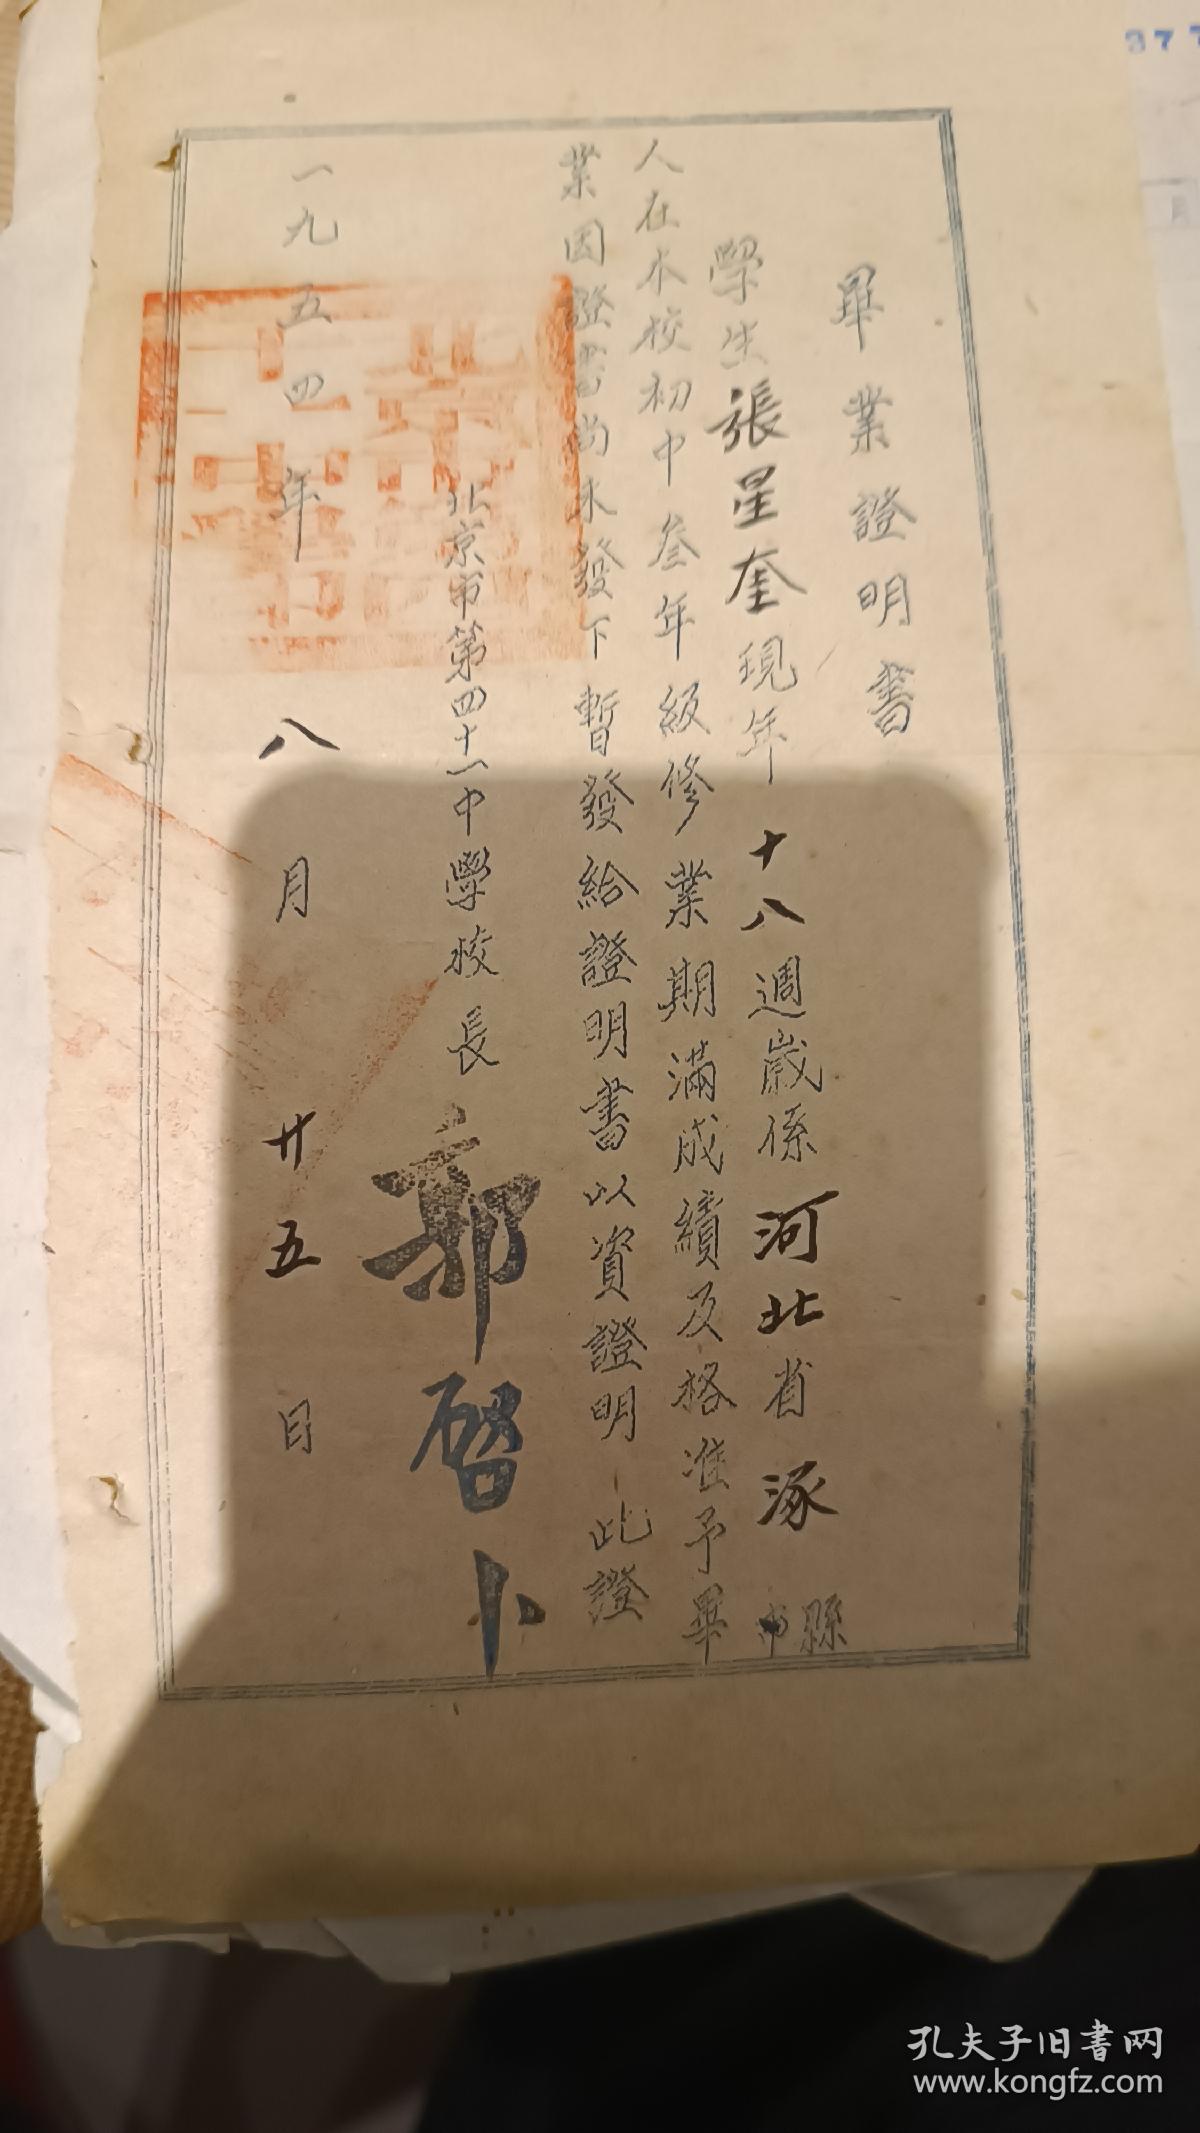 377
畢業證明書
學生張星奎現年十八週歲係河北省涿縣市
人在本校初中叁年級修業期滿成績及格准予畢
業因證書尚未發下暫發給證明書以資證明 此證
北京市第四十一中學校長 郭啓卜
一九五四年八月廿五日
孔夫子旧书网
www.kongfz.com